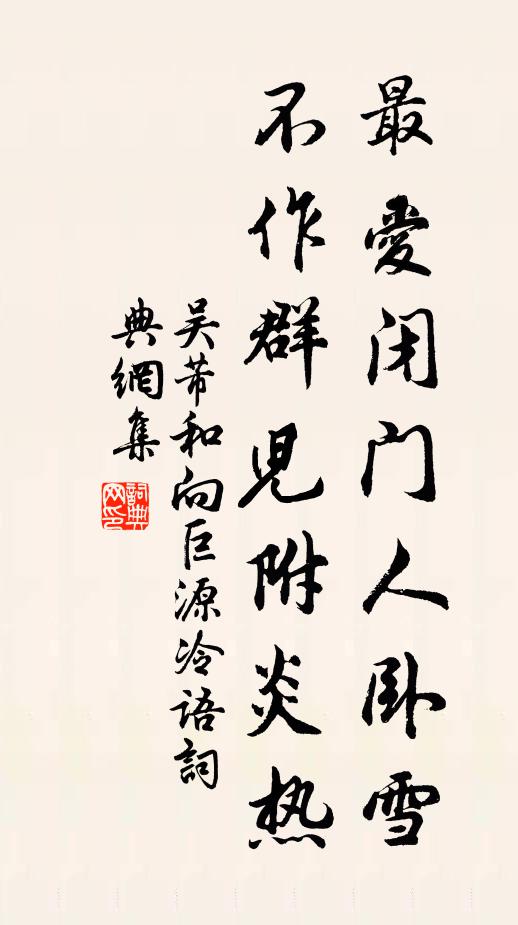 最愛闭门人卧雪
不作群児附炎热
吴芾和向巨源冷语詞
典網集
詞典
网印